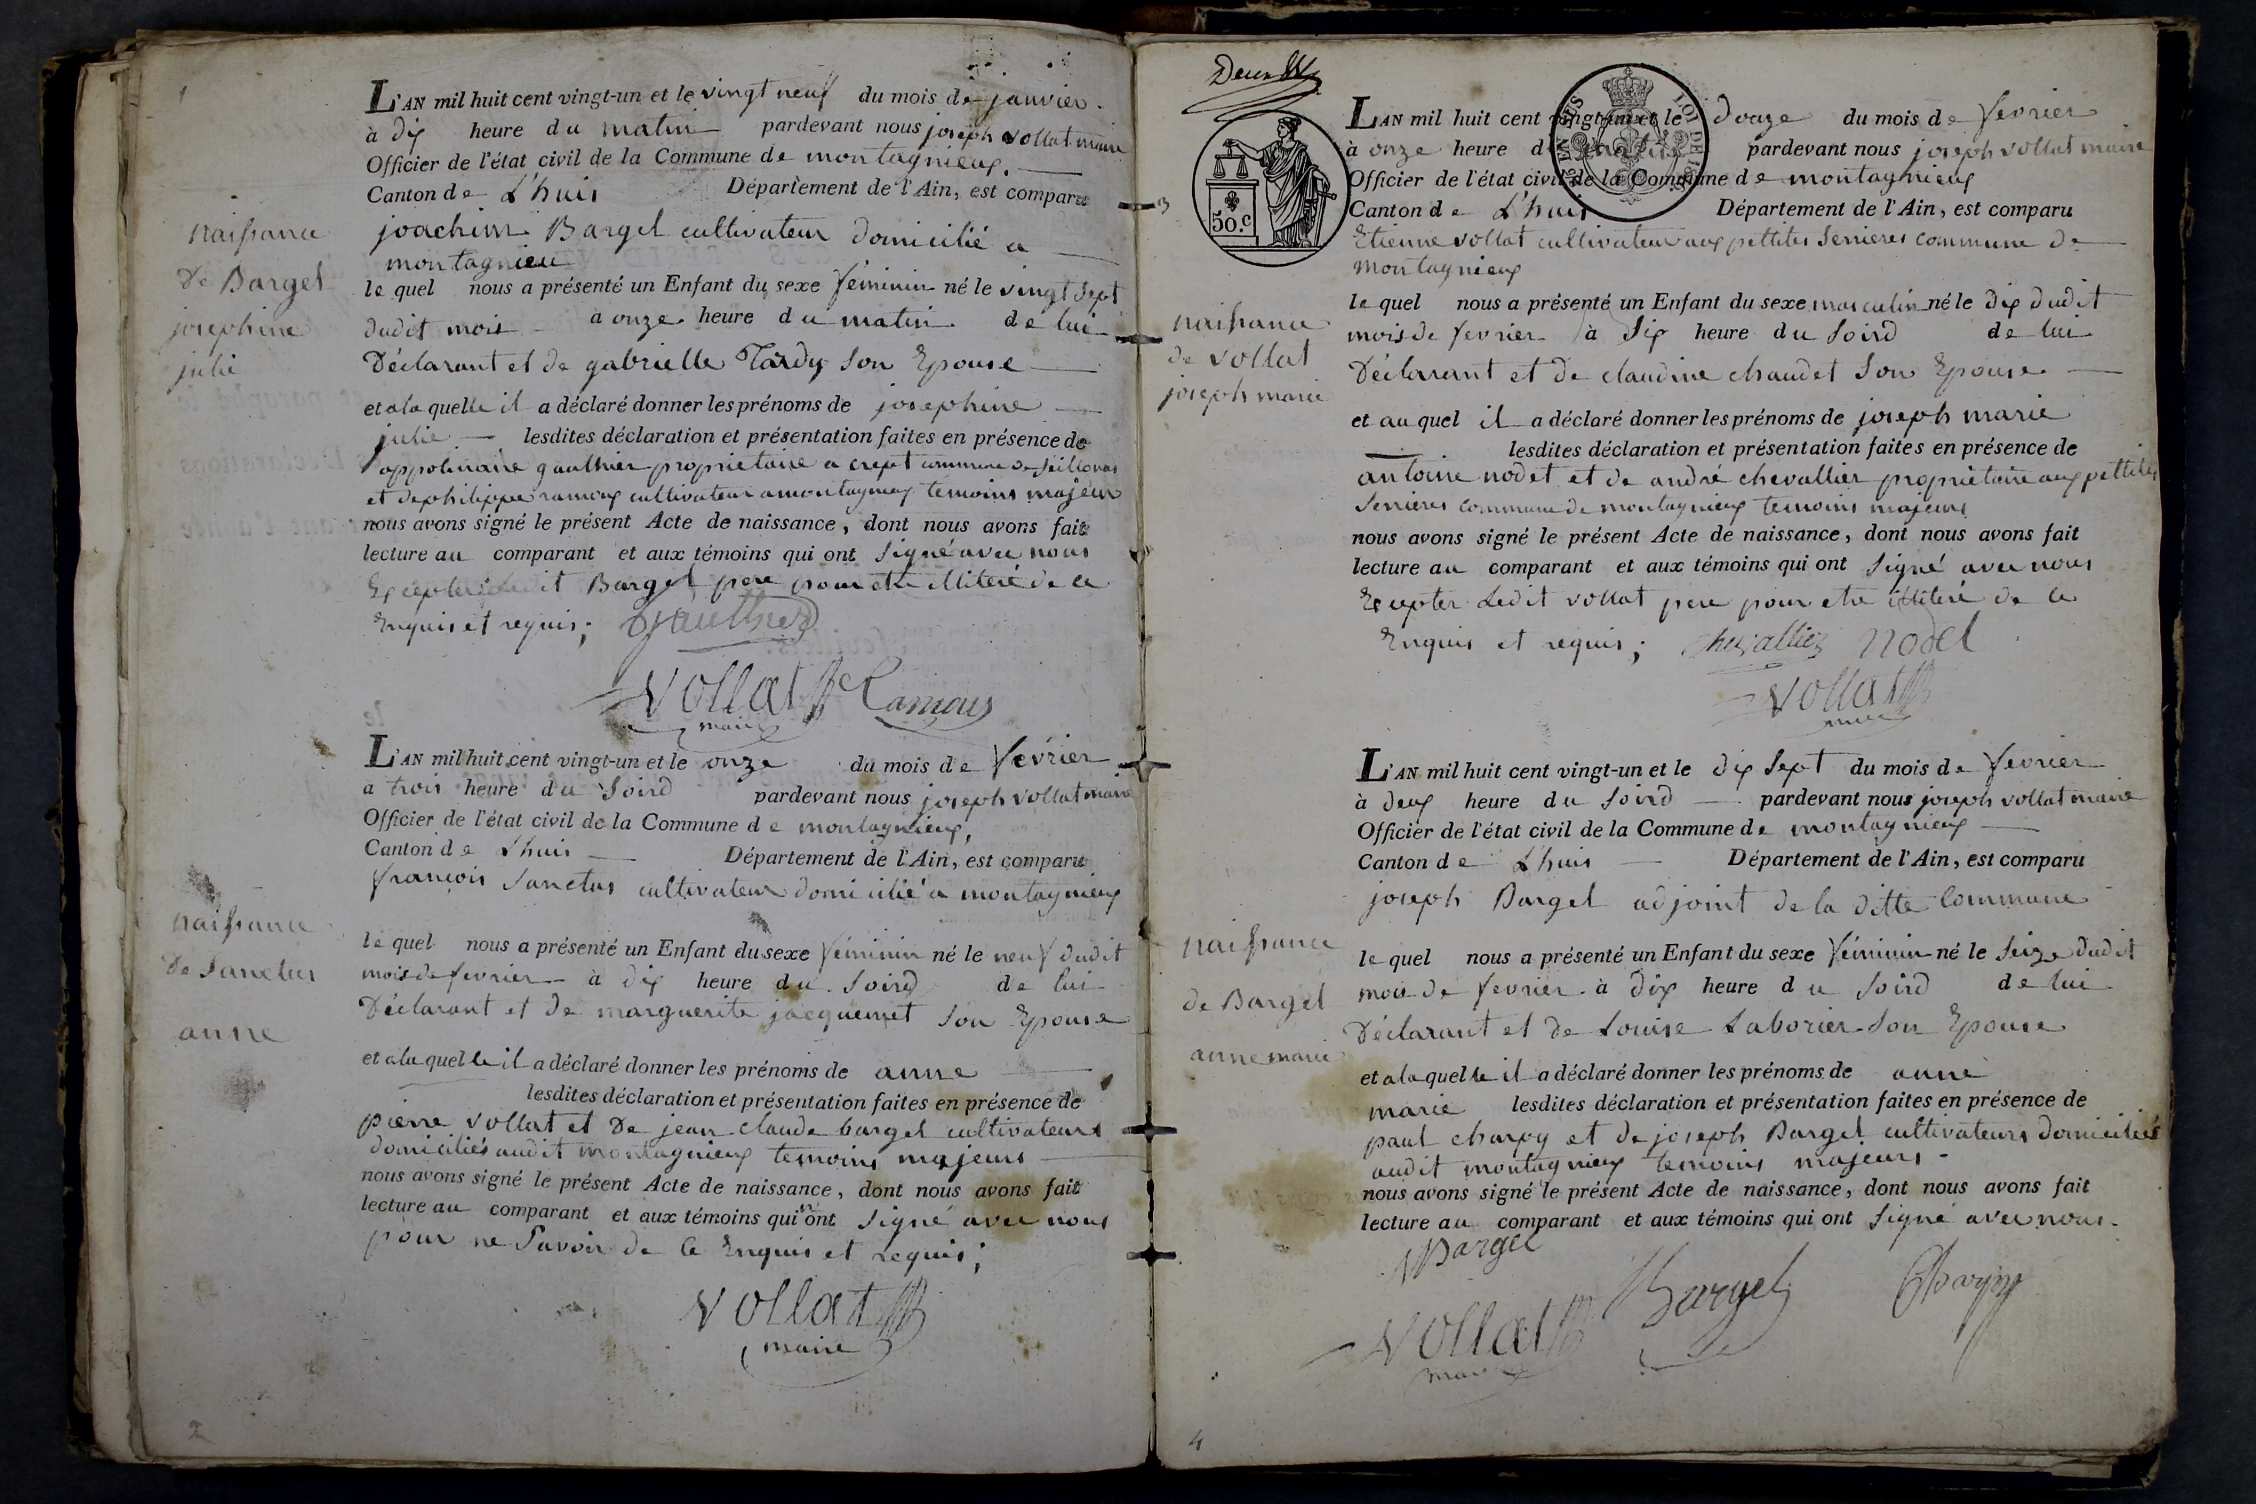 1
L'AN mil huit cent vingt-un et le vingt neuf du mois de janvier
à dix heure du matin pardevant nous joseph vollat maire
Officier de l'état civil de la Commune de montagnieux.
Canton de L'huis Département de l'Ain, est comparu
joachim Barget cultivateur domicilié a
montagnieu
naissance
de Barget
josephine
julie
le quel nous a présenté un Enfant du sexe féminin né le vingt sept
dudit mois à onze heure du matin de lui
Déclarant et de gabrielle Tardy son Epouse
et a la quelle il a déclaré donner les prénoms de josephine
julie lesdites déclaration et présentation faites en présence de
appolinaire gauthier proprietaire a crept commune de seillonas
et de philippe ramoux cultivateur a montagnieux temoins majeur
nous avons signé le présent Acte de naissance, dont nous avons fait
lecture au comparant et aux témoins qui ont signé avec nous
Excepter ledit Barget pere pour etre illiteré de ce
Enquis et requis; Gauthier
Vollat Ramoux
maire
L'AN mil huit cent vingt-un et le onze du mois de fevrier
a trois heure du soird pardevant nous joseph vollat maire
Officier de l'état civil de la Commune de montagnieux,
Canton de L'huis Département de l'Ain, est comparu
françois Sanctus cultivateur domicilié a montagnieux
naissance
de Sanctus
anne
le quel nous a présenté un Enfant du sexe féminin né le neuf dudit
mois de fevrier à dix heure du soird de lui
Déclarant et de marguerite jacquemet son Epouse
et a la quelle il a déclaré donner les prénoms de anne
lesdites déclaration et présentation faites en présence de
pierre vollat et de jean claude barget cultivateurs
domiciliés audit montagnieux temoins majeurs
nous avons signé le présent Acte de naissance, dont nous avons fait
lecture au comparant et aux témoins qui n'ont signé avec nous
pour ne savoir de ce Enquis et requis;
Vollat
maire
2
Deux
50.c
3
L'AN mil huit cent vingt-un et le douze du mois de fevrier
à onze heure du matin pardevant nous joseph vollat maire
Officier de l'état civil de la Commune de montagnieux
Canton de L'huis Département de l'Ain, est comparu
Etienne vollat cultivateur aux pettites serrieres commune de
montagnieux
naissance
de vollat
joseph marie
le quel nous a présenté un Enfant du sexe masculin né le dix dudit
mois de fevrier à six heure du soird de lui
Déclarant et de claudine chaudet son Epouse
et au quel il a déclaré donner les prénoms de joseph marie
lesdites déclaration et présentation faites en présence de
antoine nodet et de andré chevallier proprietaire aux pettites
serrieres commune de montagnieux temoins majeurs
nous avons signé le présent Acte de naissance, dont nous avons fait
lecture au comparant et aux témoins qui ont signé avec nous
Excepter Ledit vollat pere pour etre illiteré de ce
Enquis et requis; chevallier nodet
Vollat
maire
L'AN mil huit cent vingt-un et le dix sept du mois de fevrier
à deux heure du soird pardevant nous joseph vollat maire
Officier de l'état civil de la Commune de montagnieux
Canton de L'huis Département de l'Ain, est comparu
joseph Barget adjoint de la ditte Commune
naissance
de Barget
anne marie
le quel nous a présenté un Enfant du sexe féminin né le seize dudit
mois de fevrier à dix heure du soird de lui
Déclarant et de Louise Laborier son Epouse
et a la quelle il a déclaré donner les prénoms de anne
marie lesdites déclaration et présentation faites en présence de
paul charpy et de joseph Barget cultivateurs domiciliés
audit montagnieux temoins majeurs
nous avons signé le présent Acte de naissance, dont nous avons fait
lecture au comparant et aux témoins qui ont signé avec nous.
Barget
Vollat Barget Charpy
maire
4